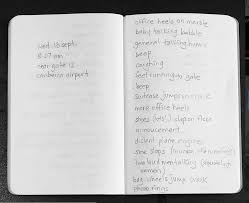 wed 18 sept
8:27 am
near gate 12
canberra airport
office heels on marble
baby talking babble
general talking hum
beep
coughing
feet running to gate
beep
suitcase jumps on
more office heels
shoes clop on floor
announcement
distant plane engine
shoe slaps
two loud men talking
bag wheels jump crack
phone rings